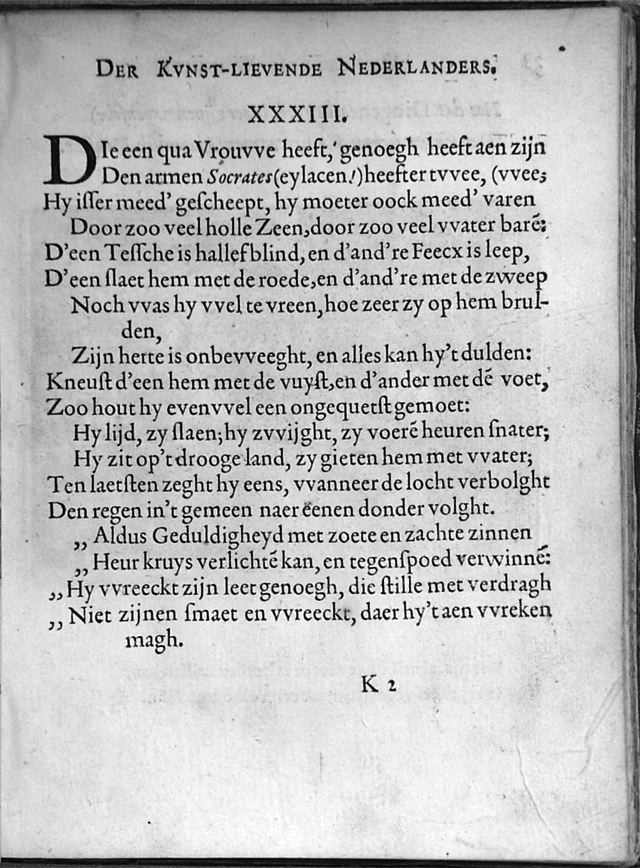 DER KVNST-LIEVENDE NEDERLANDERS.
XXXIII.
DIe een qua Vrouvve heeft, genoegh heeft aen zijn
Den armen Socrates (eylacen!) heefter tvvee, (vvee;
Hy iſſer meed' geſcheept, hy moeter oock meed' varen
Door zoo veel holle Zeen, door zoo veel vvater barē:
D'een Teſſche is hallef blind, en d'and're Feecx is leep,
D'een ſlaet hem met de roede, en d'and're met de zweep
Noch vvas hy vvel te vreen, hoe zeer zy op hem brul-
den,
Zijn herte is onbevveeght, en alles kan hy't dulden:
Kneuſt d'een hem met de vuyſt, en d'ander met dē voet,
Zoo hout hy evenvvel een ongequetſt gemoet:
Hy lijd, zy ſlaen; hy zvvijght, zy voerē heuren ſnater;
Hy zit op't drooge land, zy gieten hem met vvater;
Ten laetſten zeght hy eens, vvanneer de locht verbolght
Den regen in't gemeen naer eenen donder volght.
,, Aldus Geduldigheyd met zoete en zachte zinnen
,, Heur kruys verlichtē kan, en tegenſpoed verwinnē:
,, Hy vvreeckt zijn leet genoegh, die ſtille met verdragh
,, Niet zijnen ſmaet en vvreeckt, daer hy't aen vvreken
magh.
K 2